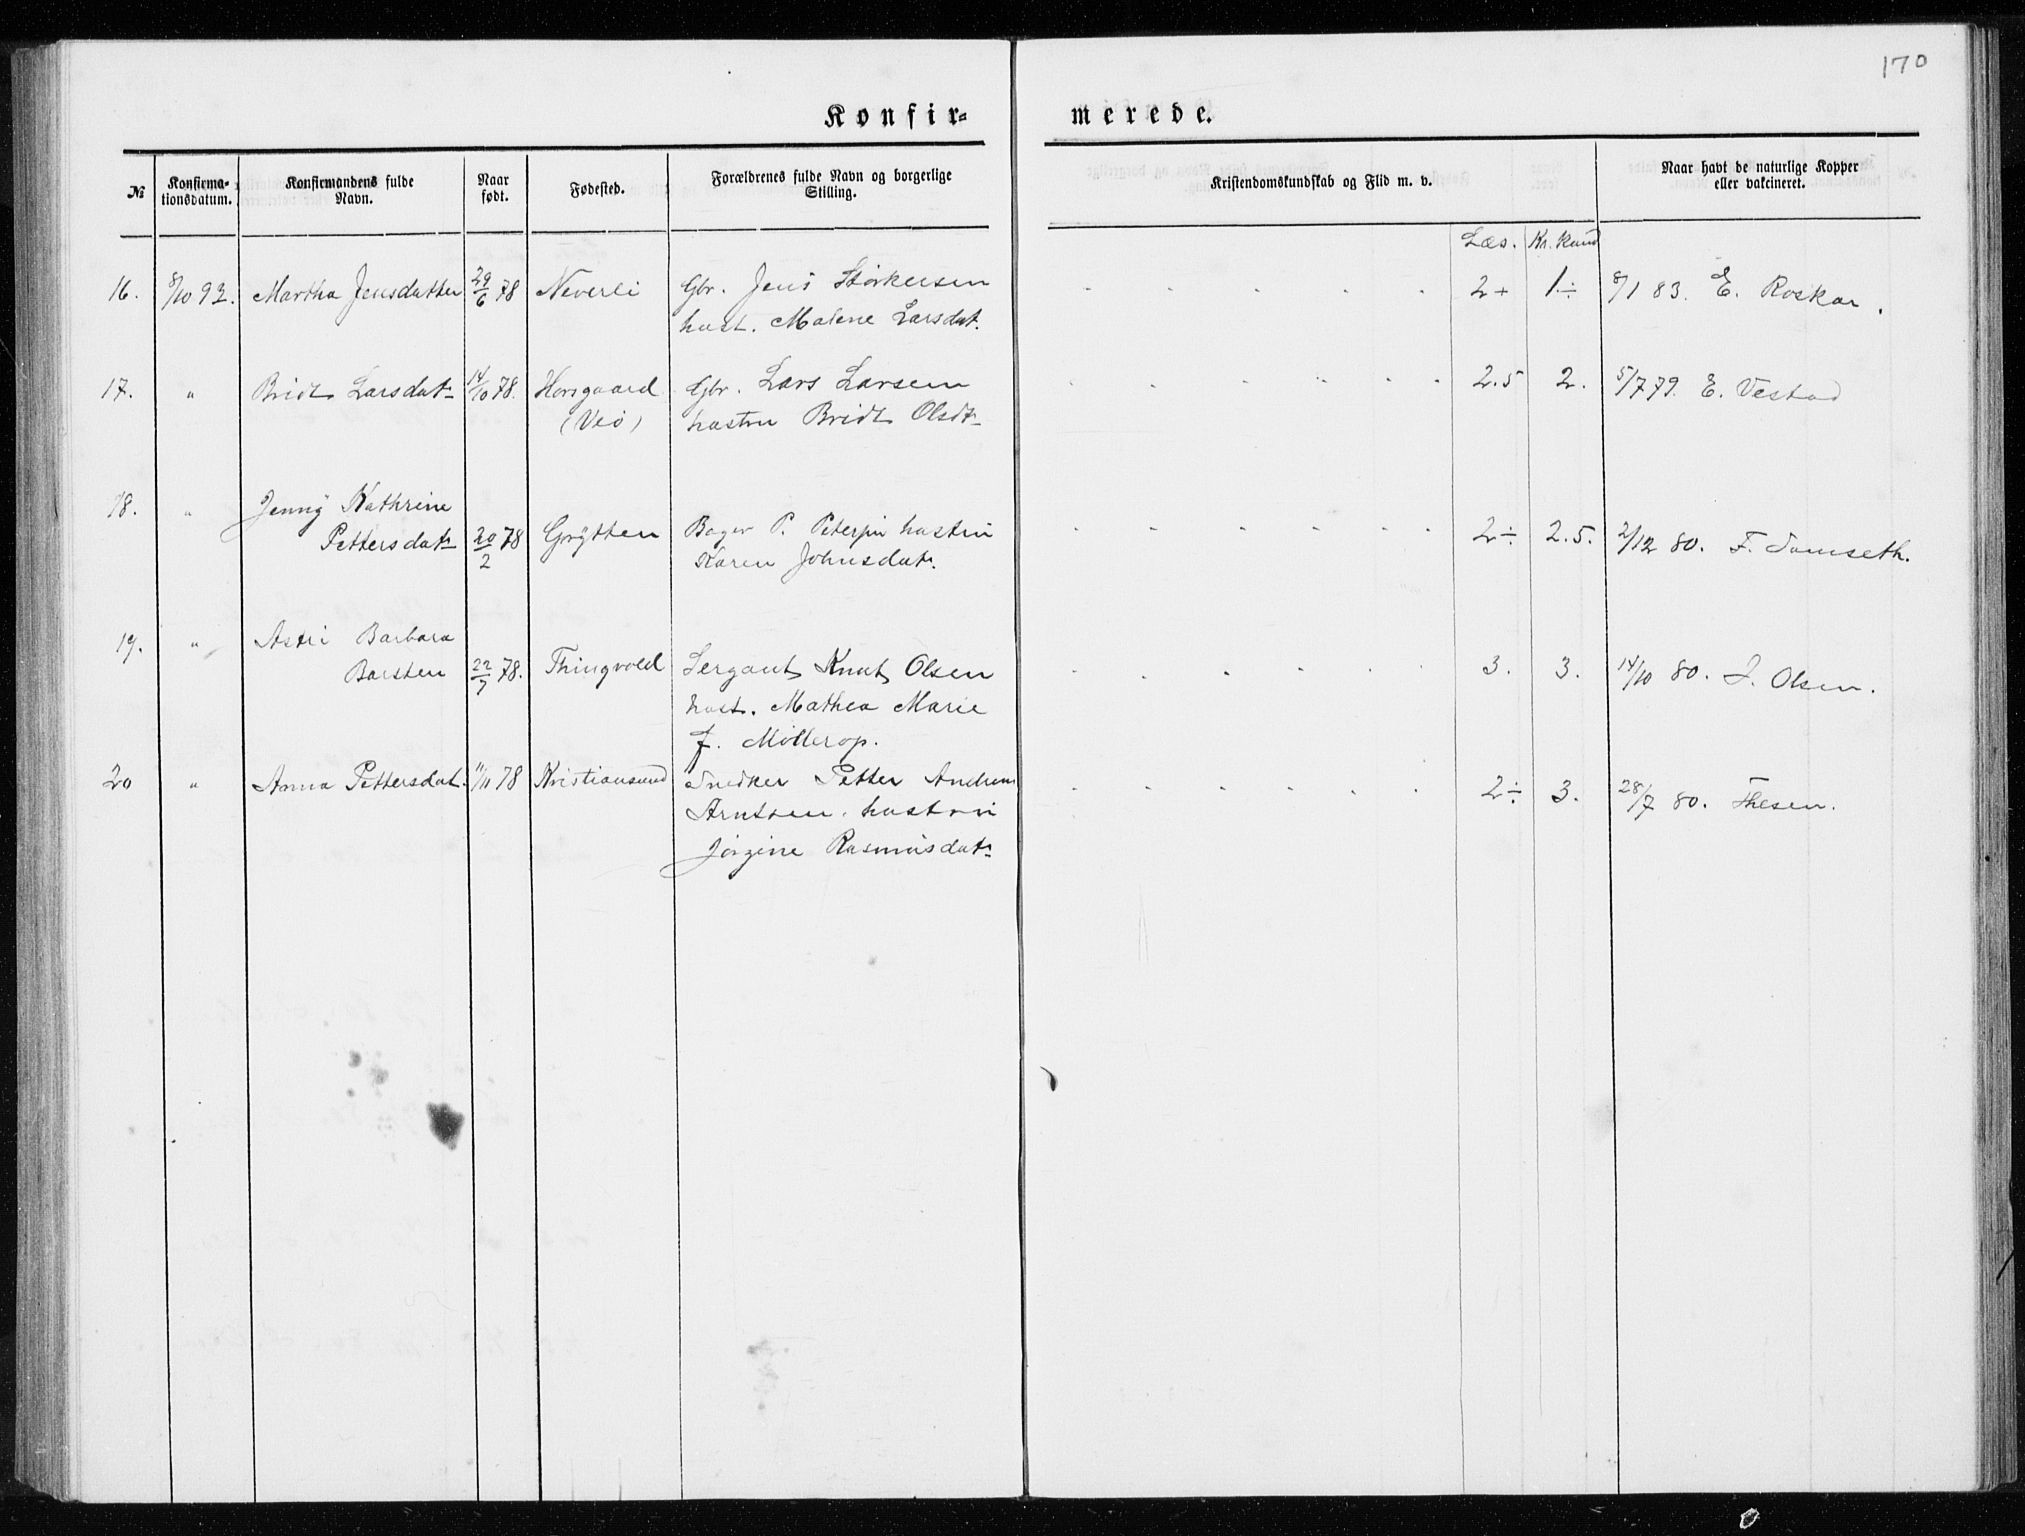 170
Konfir-
merede.
№
Konfirma-
tionsdatum.
Konfirmandens fulde
Navn.
Naar
født.
Fødested.
Forældrenes fulde Navn og borgerlige
Stilling.
Kristendomskundskab og Flid m. v.
Naar havt de naturlige Kopper
eller vakcineret.
Læs. Kr. kund
16. 8/10 92. Martha Jensdatter 29/6 78 Neverli Gbr. Jens Størkersen 2+ 1÷ 8/1 83. E. Roskar.
hust. Malene Larsdat.
17. " Bridt Larsdatr 14/10 78. Horsgaard Gbr. Lars Larsen 2.5 2. 5/7 79. E. Vestad
(Veö) hustru Bridt Olsdtr
18. " Jenny Kathrine
Pettersdatr 20/2 78 Grytten Bager P. Petersen hustru 2÷ 2.5. 2/12 80. F. Tomseth.
Karen Johnsdatr.
19. " Astri Barbara
Barsten 22/7 78. Thingvold Sergant Knut Olsen 3. 3. 14/10 80. J. Olsen.
hust. Mathea Marie
f. Möllerop.
20 " Anna Pettersdat. 11/11 78 Kristiansund Snedker Petter Andreas 2÷ 3. 28/7 80. Thesen.
Arntsen. hustru
Jörgine Rasmusdatr